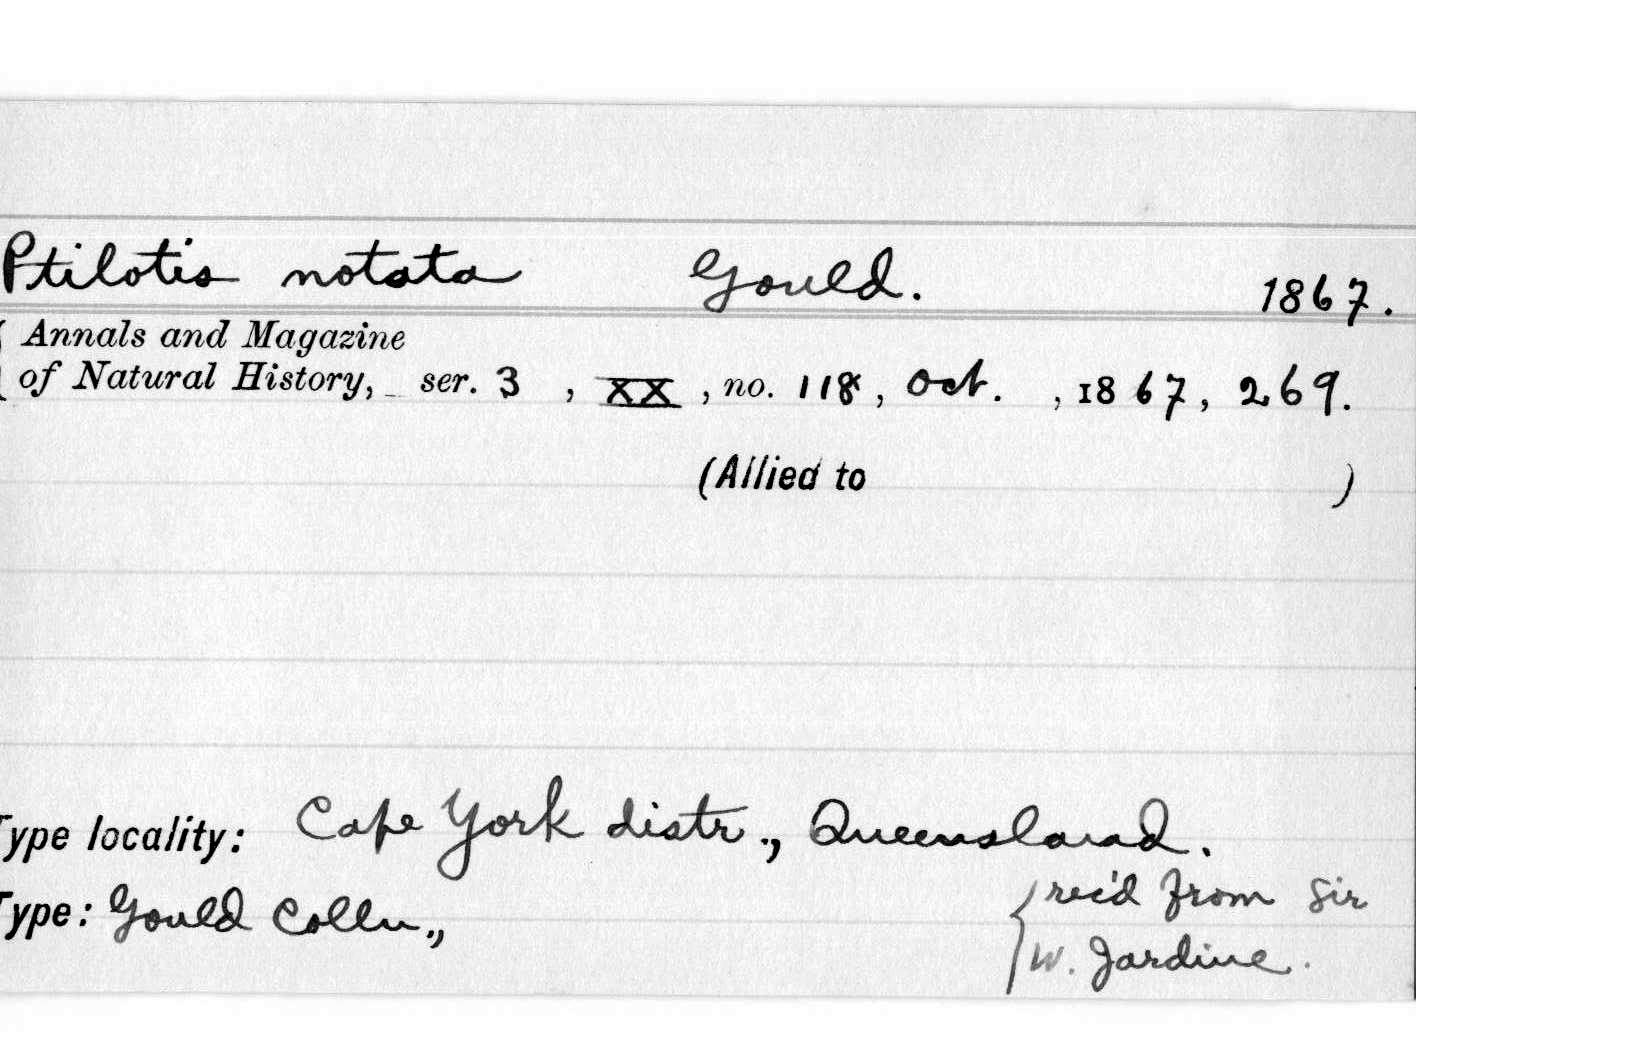 Ptilotis notata Gould. 1867.
Annals and Magazine
of Natural History, ser. 3, XX, no. 118, Oct. , 1867, 269.
(Allied to )
Type locality: Cape York distr., Queensland.
Type: Gould Colln., { rec'd from Sir
W. Jardine.